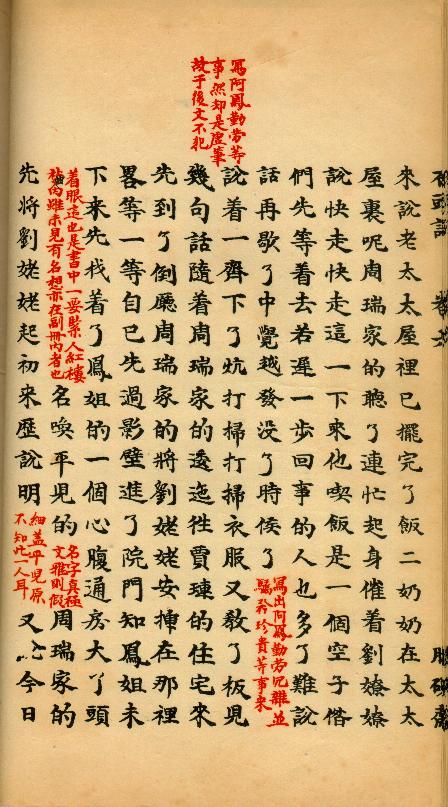 寫阿鳳勤勞等
事然却是虛筆
故于後文不犯
來說老太太屋裡已擺完了飯二奶奶在太太
屋裏呢周瑞家的聽了連忙起身催着劉嫽嫽
說快走快走這一下來他喫飯是一個空子偺
們先等着去若遲一步回事的人也多了難說
話再歇了中覺越發没了時候了
寫出阿鳳勤勞冗雜並
驕矜珍貴等事來
說着一齊下了炕打掃打掃衣服又教了板児
幾句話隨着周瑞家的逶迤徃賈璉的住宅來
先到了倒廳周瑞家的將劉姥姥安揷在那裡
畧等一等自已先過影壁進了院門知鳳姐未
下来先找着了鳳姐的一個心腹通房大丫頭
着眼這也是書中一要緊人紅樓
夢內雖未見有名想亦在副冊內者也
名喚平児的
名字真極
文雅則假
周瑞家的
先將劉姥姥起初来歴說明
細蓋平児原
不知此一人耳
又說今日